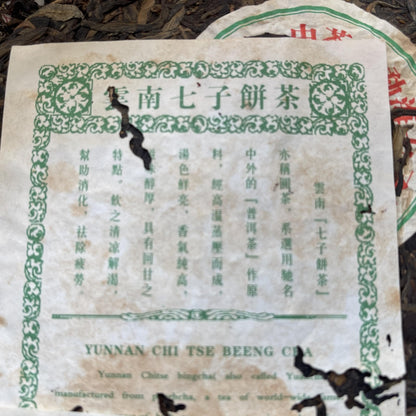 雲南七子餅茶
雲南『七子餅茶』
亦稱圓茶，系選用馳名
中外的『普洱茶』作原
料，經高温蒸壓而成，
湯色鮮亮，香氣純高，
味醇厚，具有回甘之
特點，飲之清凉解渴，
幫助消化，祛除疲勞
YUNNAN CHI TSE BEENG
Yunnan Chitse bingcha, also called
manufactured from a tea of world-wide fame
中